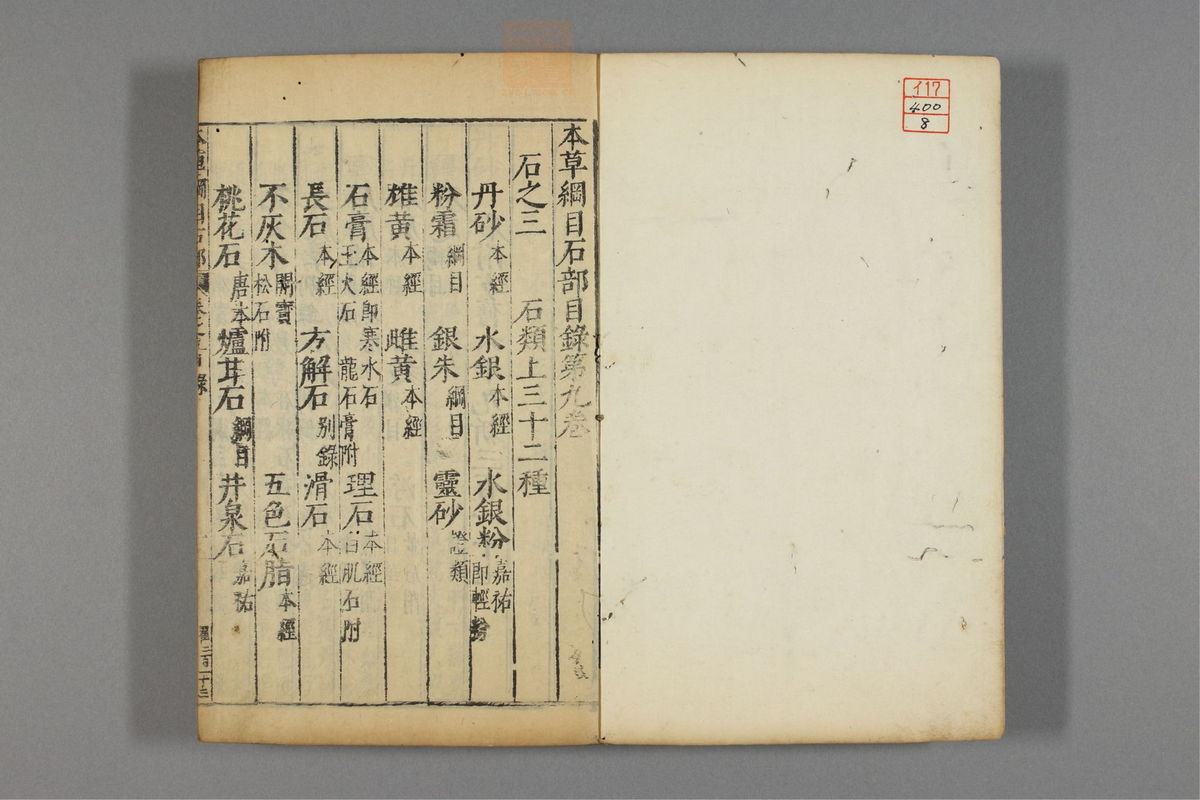 117
400
8
本草綱目石部目錄第九卷
石之三 石類上三十二種
丹砂 本經 水銀 本經 水銀粉 嘉祐 即輕粉
粉霜 綱目 銀朱 綱目 靈砂 證類
雄黃 本經 雌黃 本經
石膏 本經即寒水石 玉火石 龍石膏附 理石 本經 白肌石附
長石 本經 方解石 別錄 滑石 本經
不灰木 開寶 松石附 五色石脂 本經
桃花石 唐本 爐甘石 綱目 井泉石 嘉祐